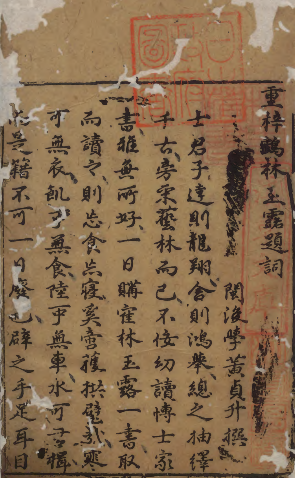 重梓鶴林玉露題詞
閩後學黃貞升撰
士君子達則龍翔舍則鴻舉總之抽繹
千古旁采藝林而已不佞幼讀博士家
書雅無所好一日購崔林玉露一書取
而讀之則忘食忘寢奚啻獲拱璧乎寒
可無衣飢可無食陸可無車水可無楫
是籍不可一日廢辟之手足耳目